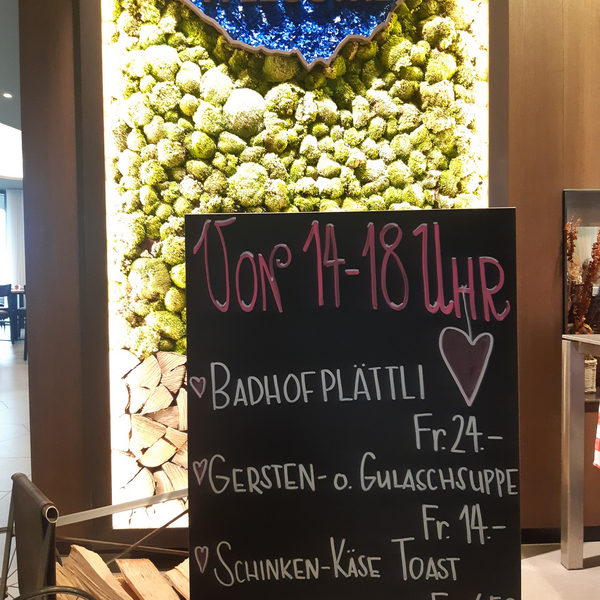 Von 14-18 Uhr
BADHOFPLÄTTLI
Fr. 24.-
GERSTEN- o. GULASCHSUPPE
Fr. 14.-
SCHINKEN-KÄSE TOAST